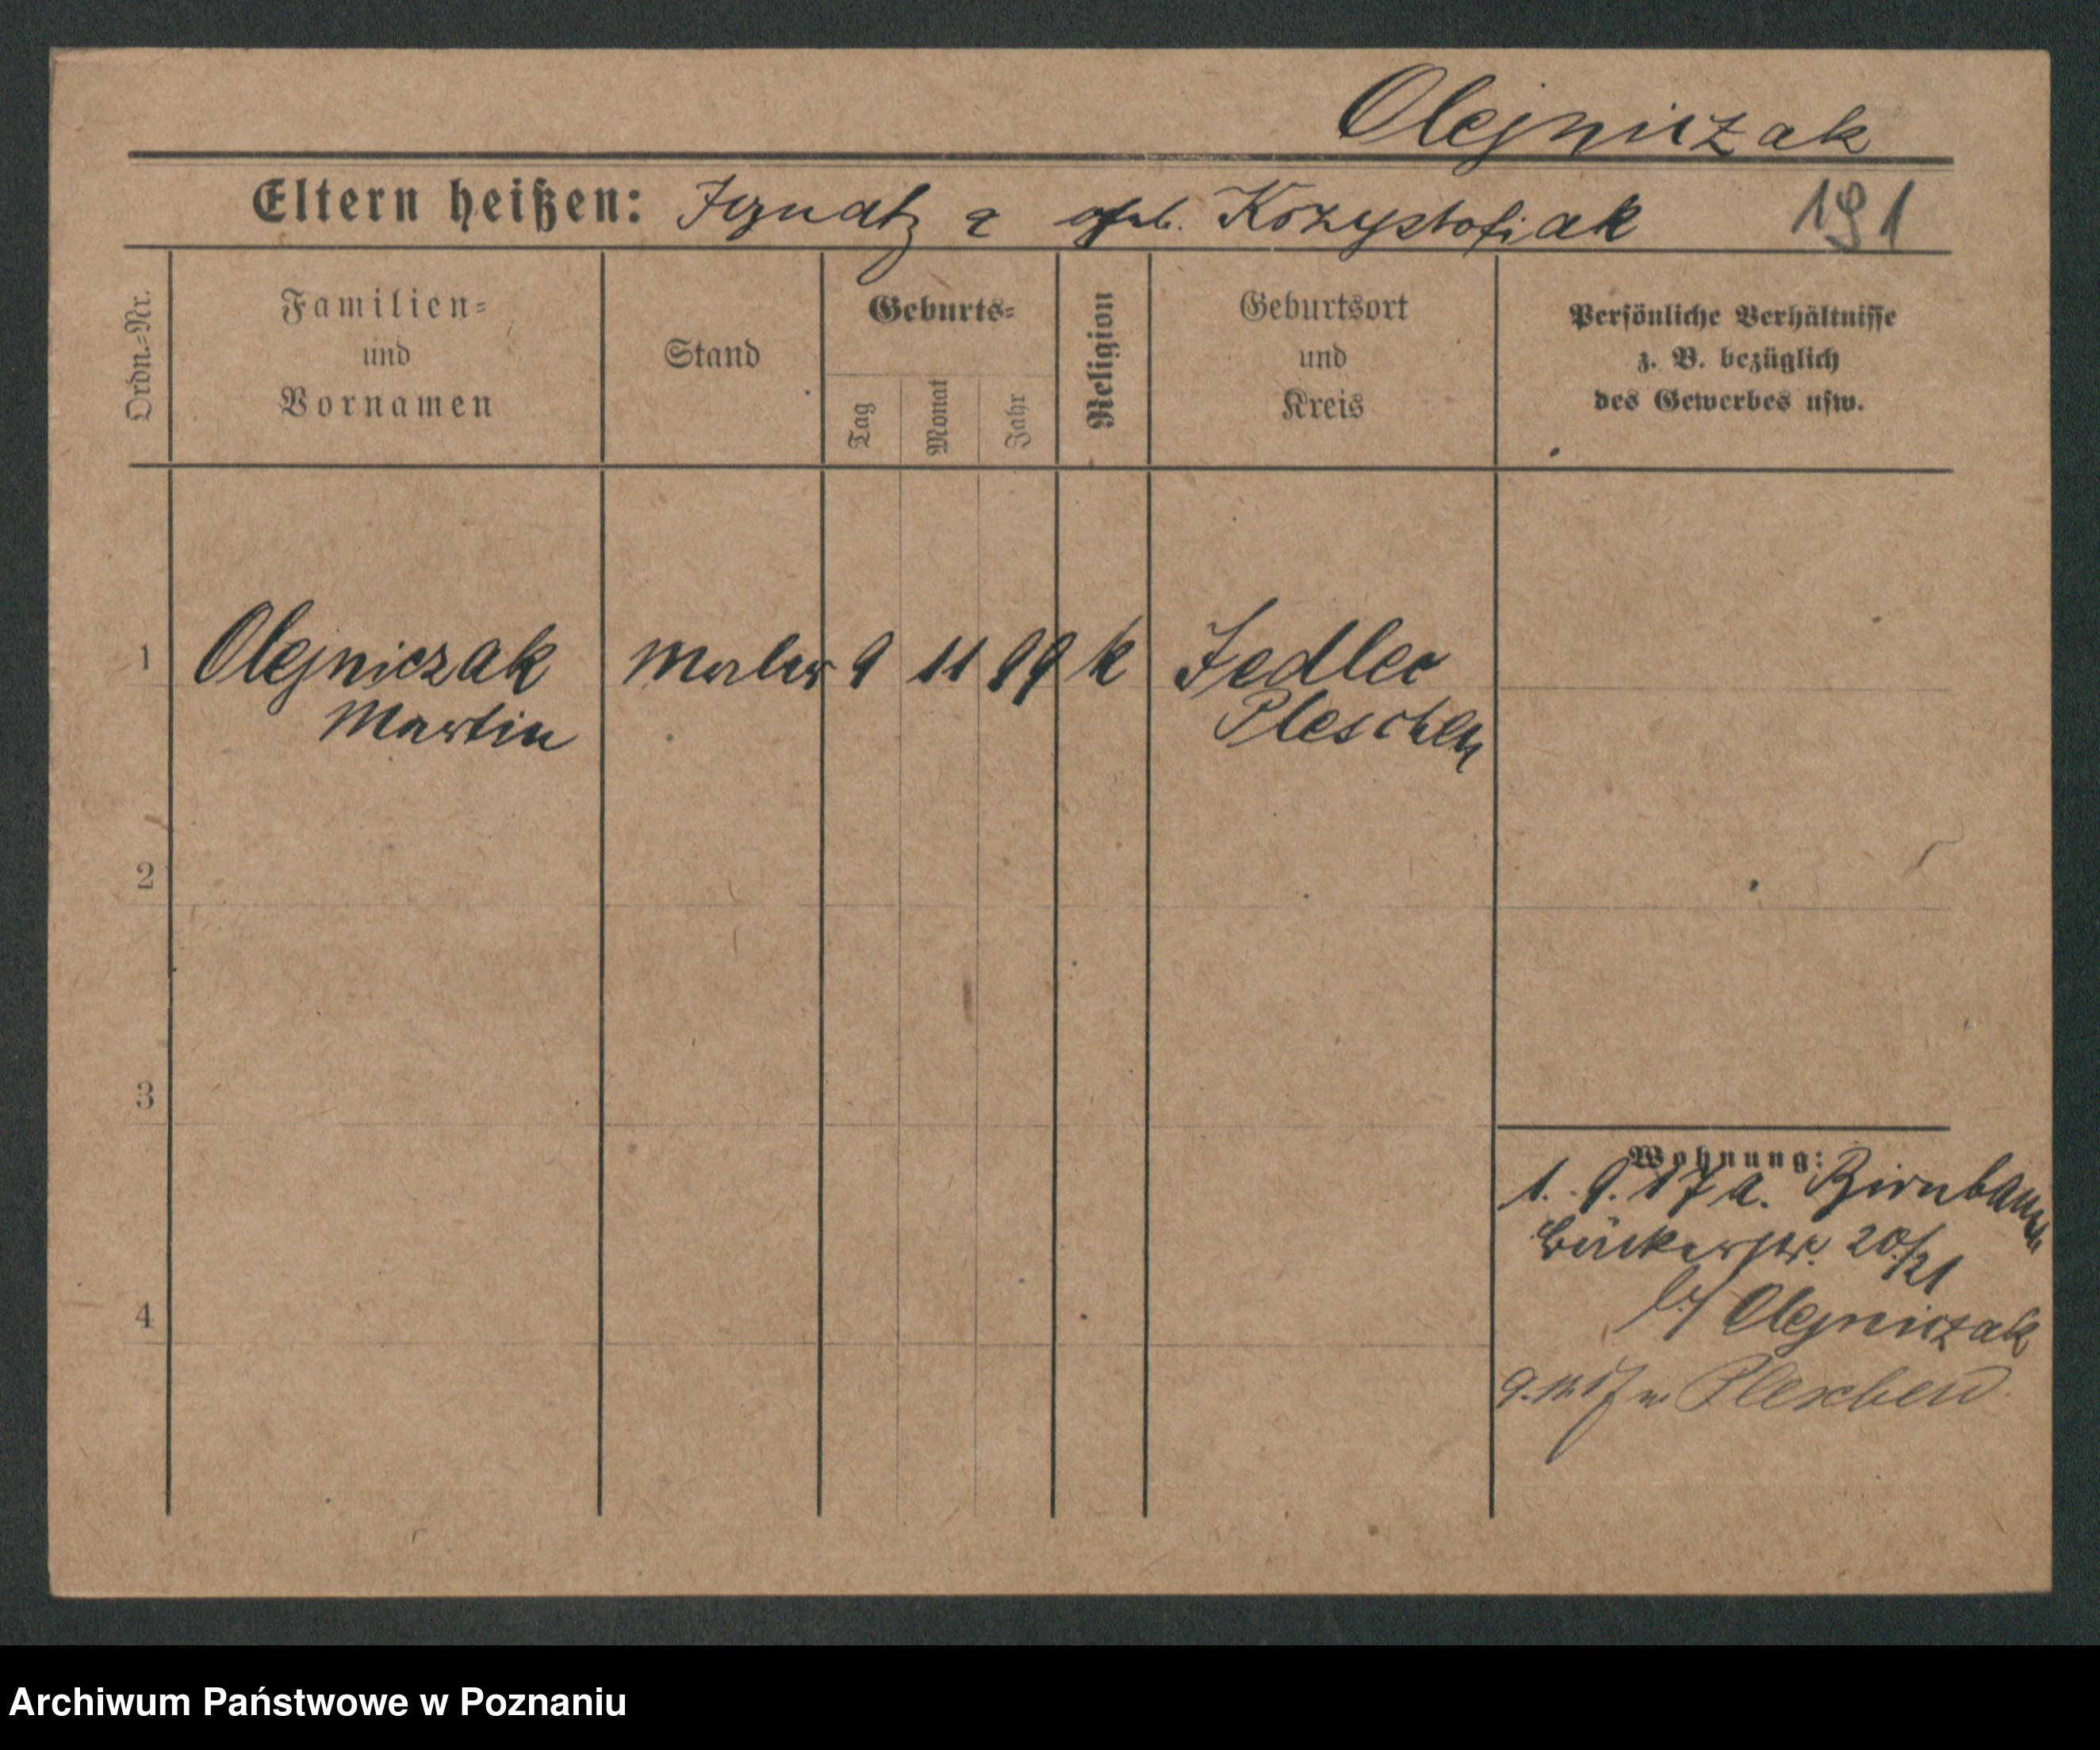 Olejniczak
Eltern heißen: Ignatz & geb. Krzystofiak 191
Ordn.=Nr.
Familien=
und
Vornamen
Stand
Geburts=
Tag
Monat
Jahr
Religion
Geburtsort
und
Kreis
Persönliche Verhältnisse
z. B. bezüglich
des Gewerbes usw.
1 Olejniczak Maler 9 11 99 k Jedlec
Martin Pleschen
2
3
4
Wohnung:
1. 9. 17 a. Birnbaum
Bäckerstr. 20/21
b/ Olejniczak
9. 11. 17 n. Pleschen
Archiwum Państwowe w Poznaniu